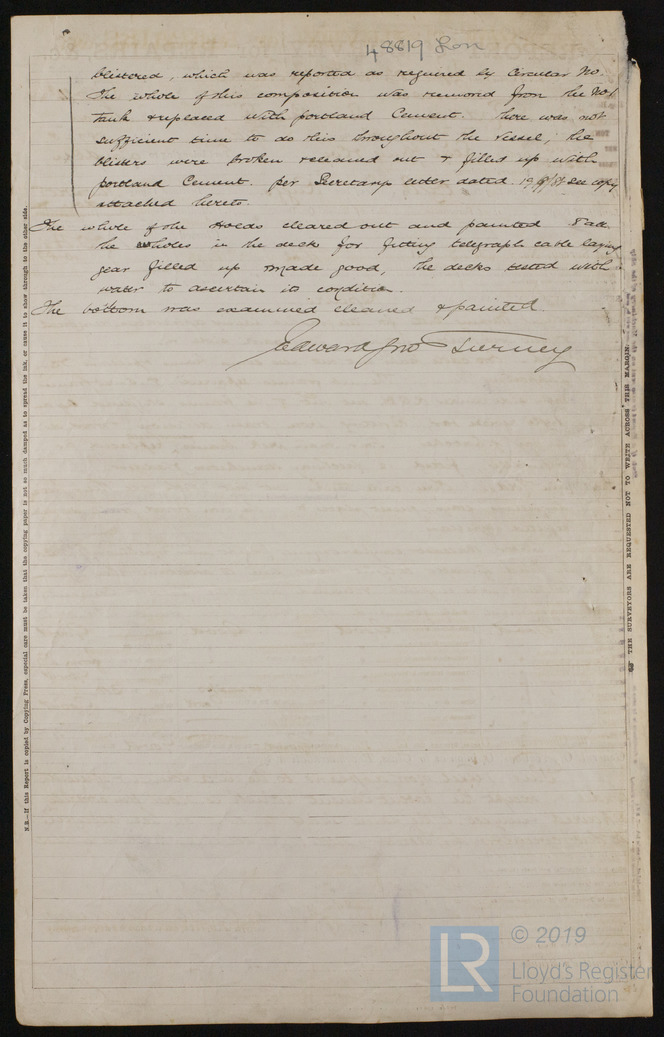 48819 Lon
blistered, which was reported as required by Circular No.
The whole of this composition was removed from the No 1
tank & replaced with portland Cement. there was not
sufficient time to do this throughout the vessel, the
blisters were broken & cleaned out & filled up with
portland Cement. per Secretarys letter dated see copy
attached hereto.
The whole of the Holds cleared out and painted & all
the holes in the decks for fitting telegraph cable laying
gear filled up made good, the decks tested with
water to ascertain its condition.
The bottom was examined cleaned & painted.
Edward Jno Tierney
N.B.—If this Report is copied by Copying Press, especial care must be taken that the copying paper is not so much damped as to spread the ink, or cause it to show through to the other side.
THE SURVEYORS ARE REQUESTED NOT TO WRITE ACROSS THIS MARGIN.
LR
© 2019
Lloyd's Register
Foundation